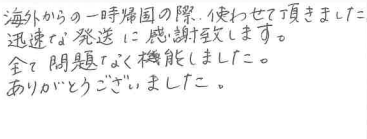 海外からの一時帰国の際、使わせて頂きました
迅速な発送に感謝致します。
全て問題なく機能しました。
ありがとうございました。